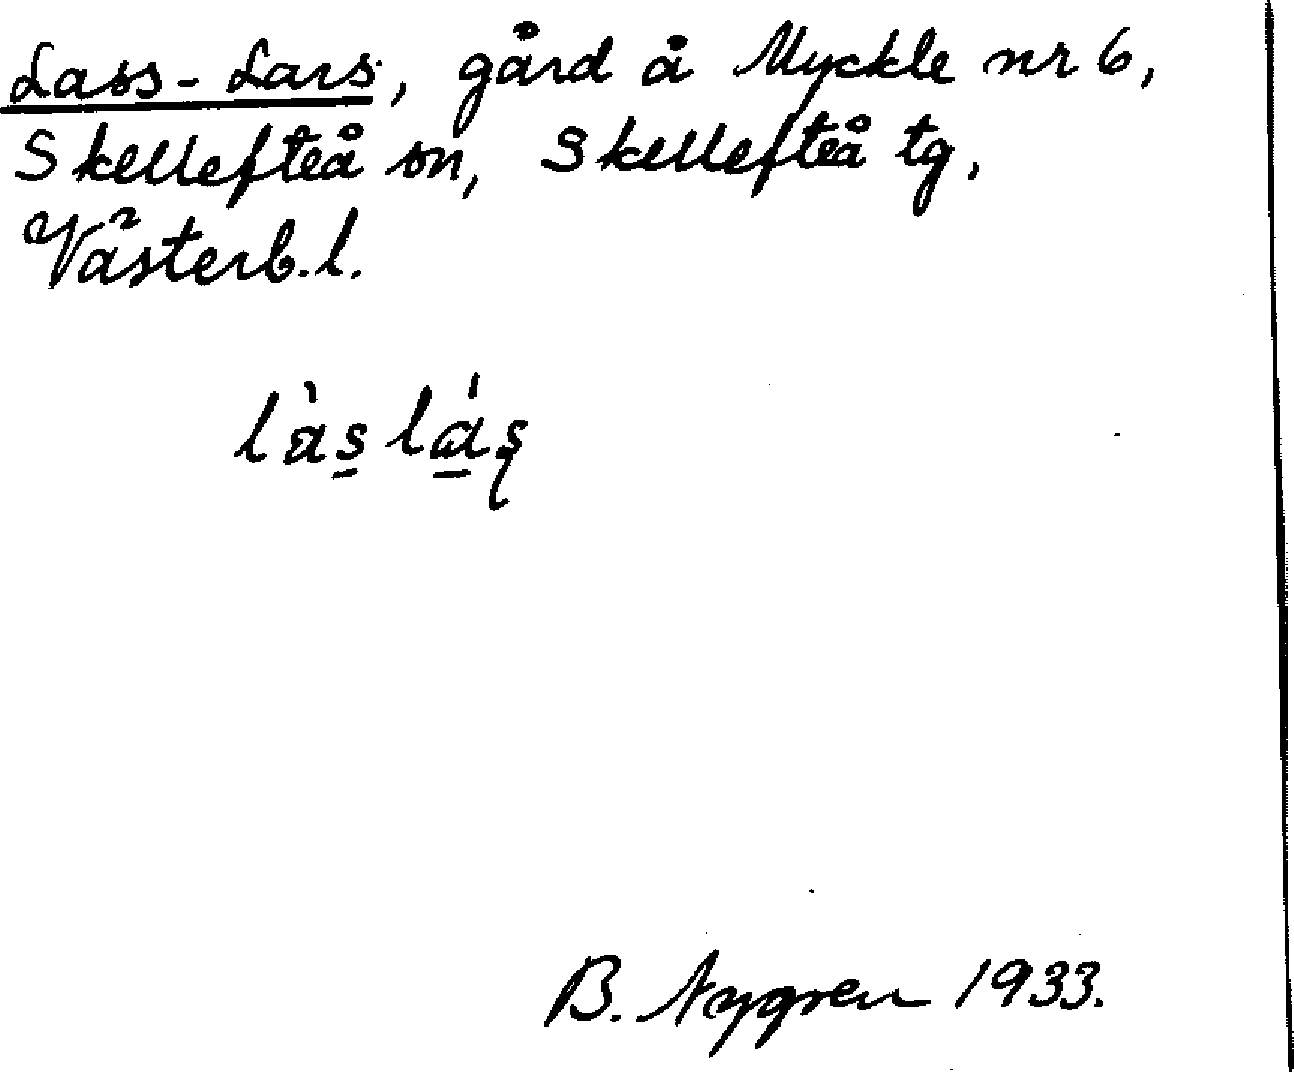 Lass-Lars, gård å Myckle nr 6,
Skellefteå sn, Skellefteå tg,
Västerb.l.
làs̲ lá̲ʂ
B. Nygren 1933.